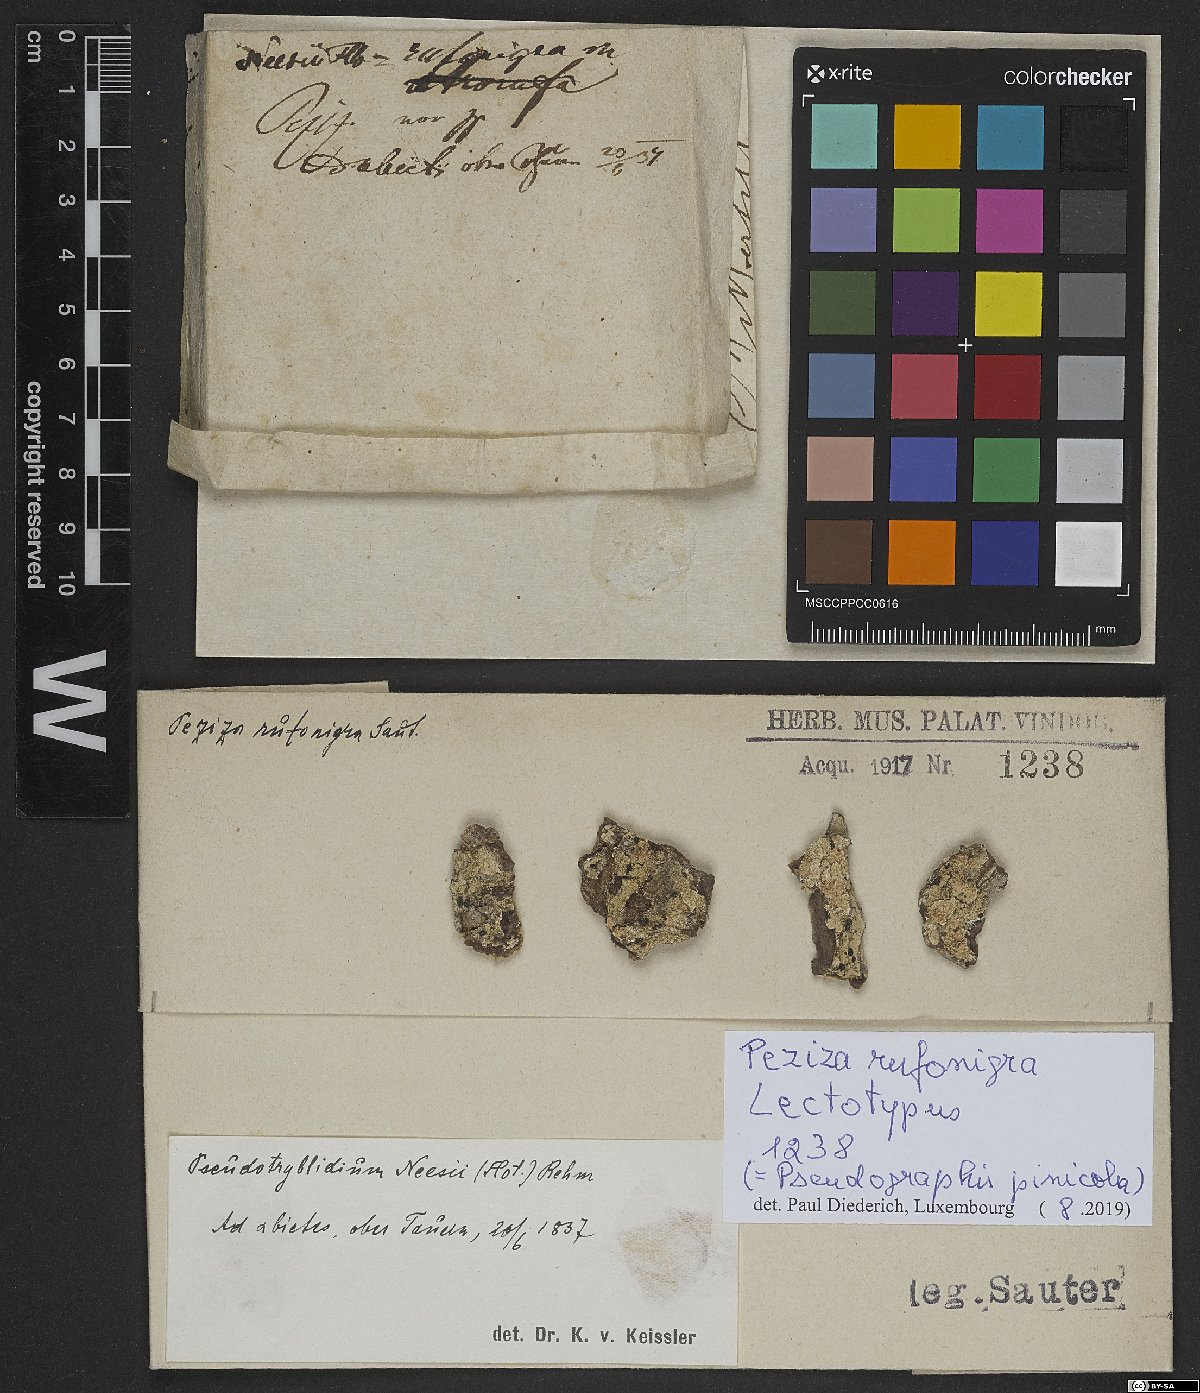 Neesii Fl = rufonigra m
Peziz. nov sp
(P) Neesii
x-rite colorchecker
MSCCPPCC0616
mm
cm 0 1 2 3 4 5 6 7 8 9 10
copyright reserved
W
Peziza rufonigra Saut.
HERB. MUS. PALAT. VINDOB.
Acqu. 1917 Nr. 1238
Peziza rufonigra
Lectotypus
1238
(= Pseudographis pinicola)
det. Paul Diederich, Luxembourg ( 8 .2019)
Pseudotryblidium Neesii (Flot.) Rehm
Ad abietes, ober 20/6 1837
det. Dr. K. v. Keissler
leg. Sauter
cc BY-SA